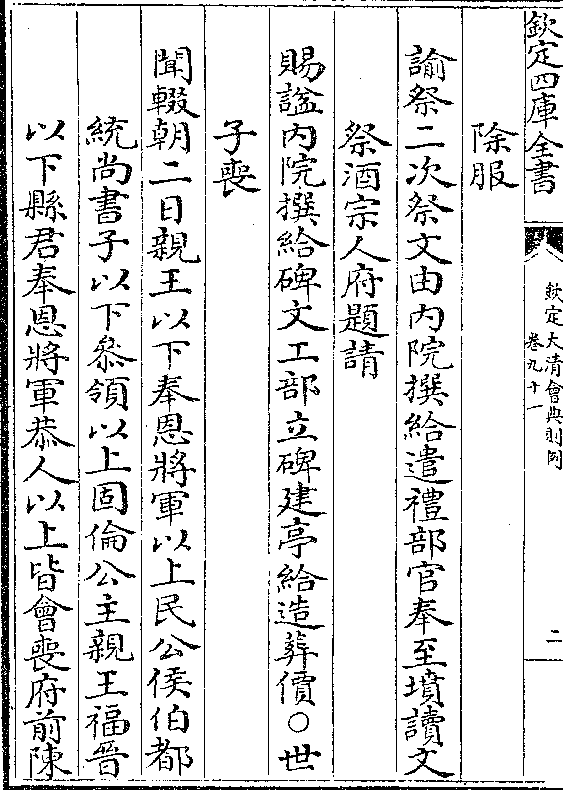 欽定四庫全書
欽定大清會典則例
卷九十一
二
除服
諭祭二次祭文由内院撰給遣禮部官奉至墳讀文
祭酒宗人府題請
賜諡内院撰給碑文工部立碑建亭給造葬價○世
子喪
聞輟朝二日親王以下奉恩將軍以上民公侯伯都
統尚書子以下叅領以上固倫公主親王福晉
以下縣君奉恩將軍恭人以上皆會喪府前陳